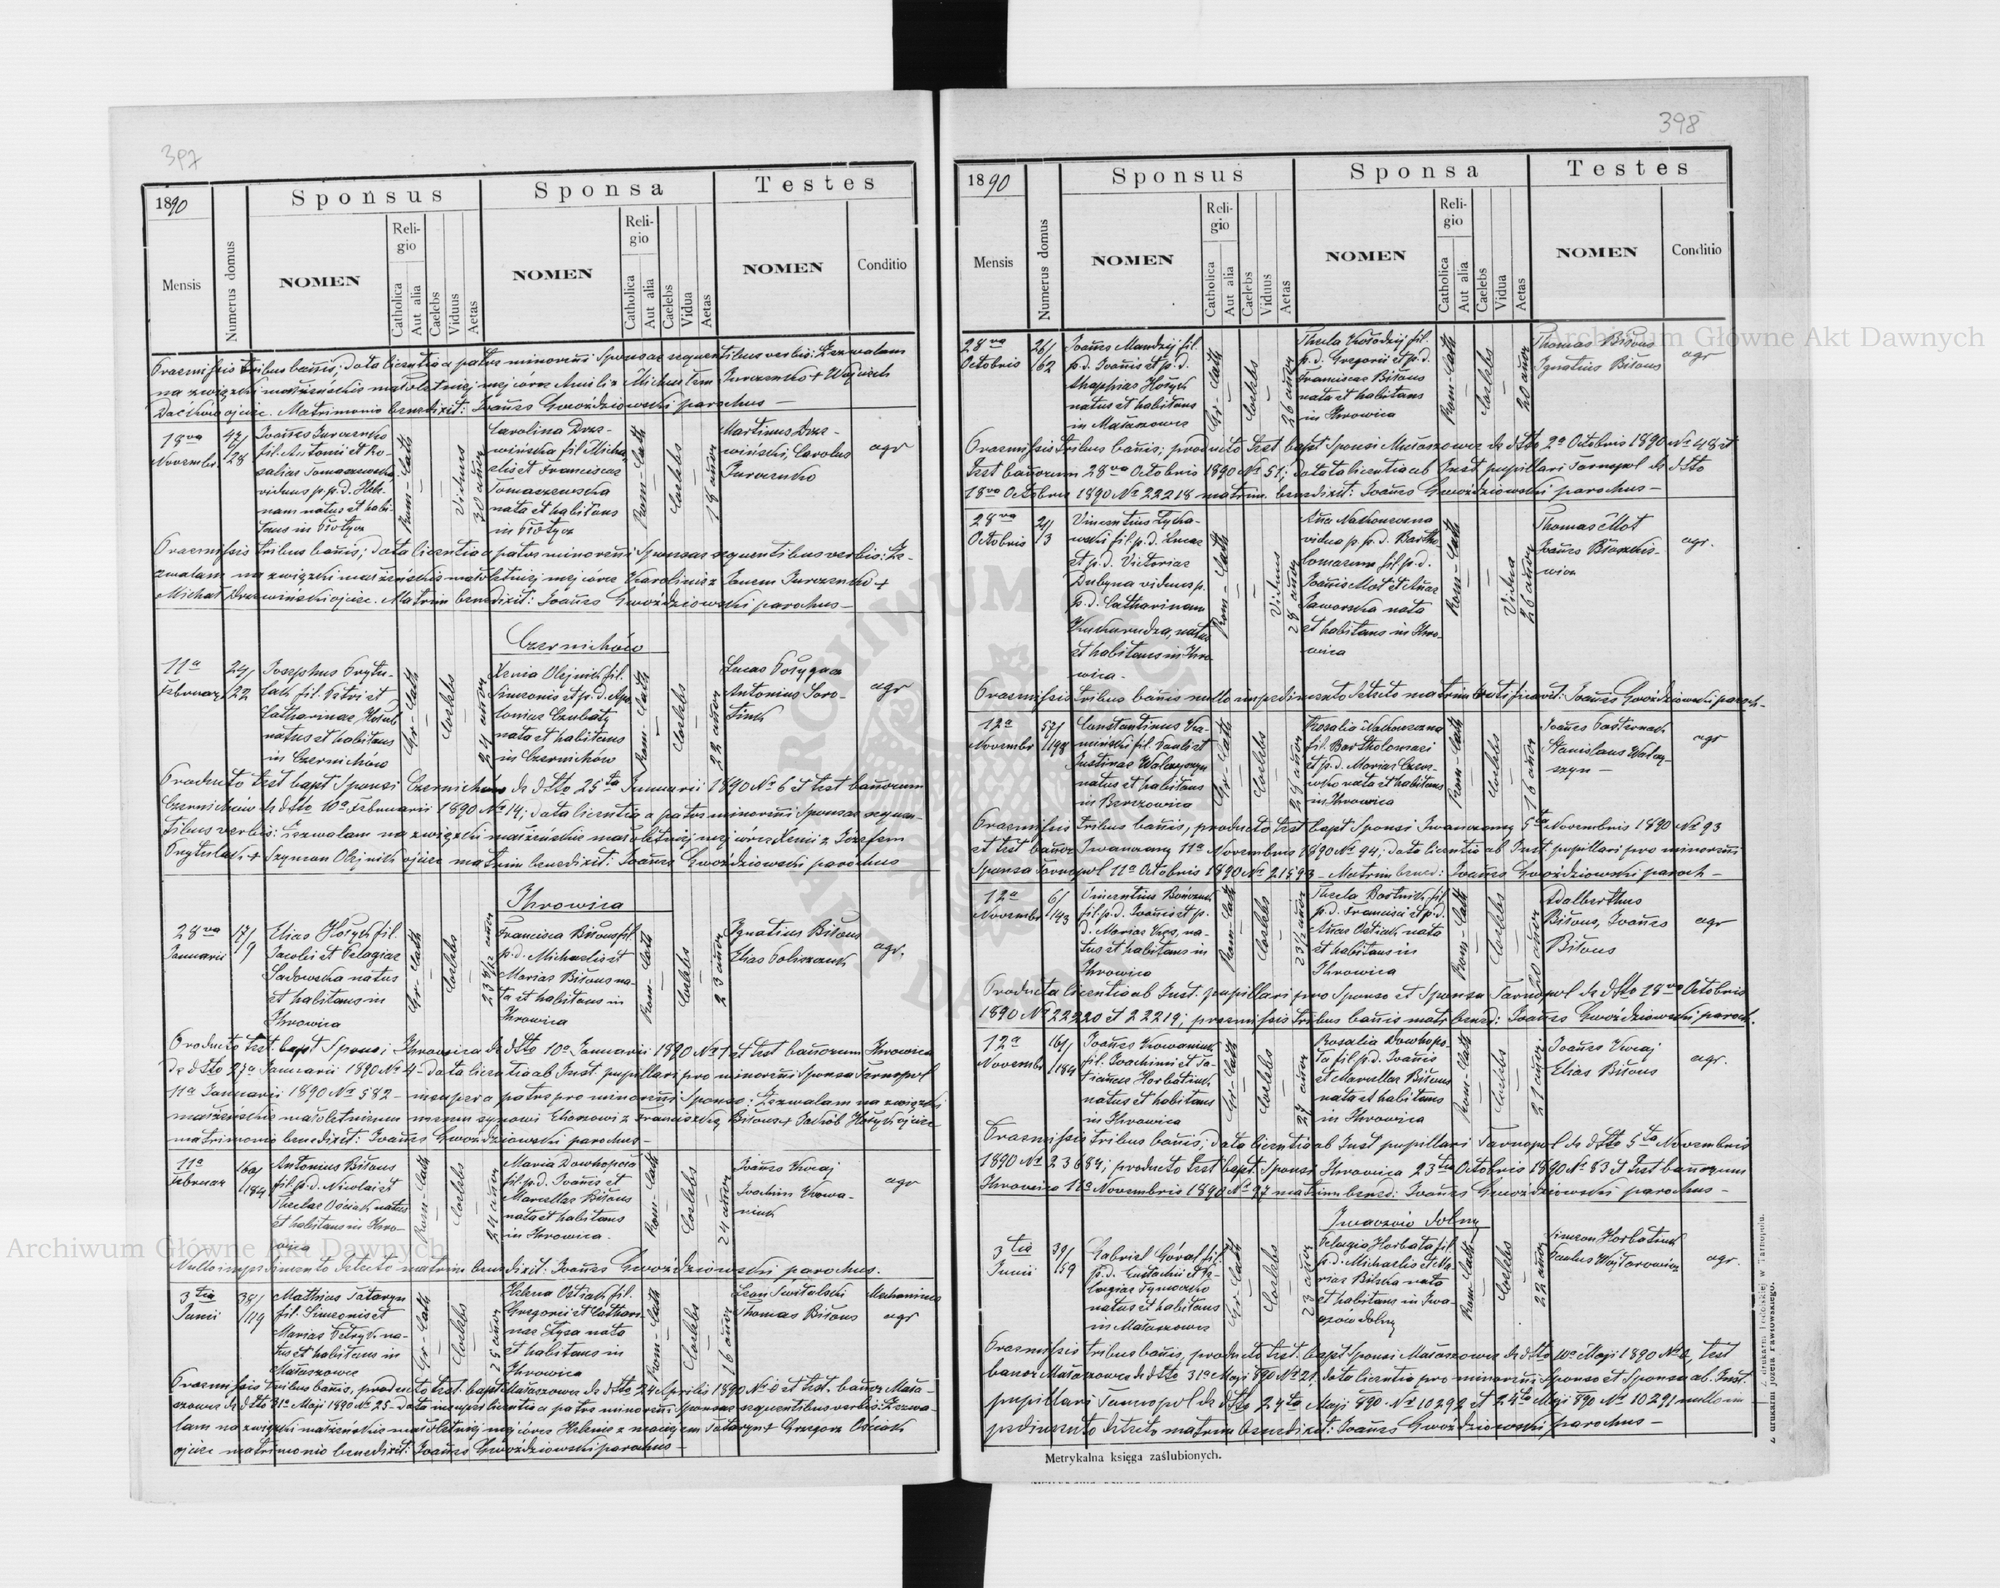 397
1890
Sponsus
Sponsa
Testes
Mensis
Numerus domus
NOMEN
Religio
Catholica
Aut alia
Caelebs
Viduus
Aetas
NOMEN
Religio
Catholica
Aut alia
Caelebs
Vidua
Aetas
NOMEN
Conditio
Praemissis tribus bannis, data licentia a patre minorenni Sponsae sequentibus verbis: Zezwalam
na związki małżeńskie małoletniej mej córce
ojciec. Matrimonio benedixit: Joannes Gwoździowski parochus —
18va
Novembr
47/
28
Joannes Jurczenko
fil. Antonii et Ro-
saliae Tomaszewska
viduus p. p. d. Hele-
nam natus et habi-
tans in Płotycz
Rom-Cath
Viduus
30 annor
Carolina Drze-
wińska fil Micha-
elis et Franciscae
Tomaszewska
nata et habitans
in Płotycz
Rom-Cath
Caelebs
18 annor
Martinus Drze-
wiński, Carolus
Jurczenko
agr
Praemissis tribus bannis; data licentia a patre minorenni Sponsae sequentibus verbis: Ze-
zwalam na związki małżeńskie małoletniej mej córce Karolinie z Janem Jurczenko +
Michał Drzewiński ojciec. Matrim benedixit: Joannes Gwoździowski parochus —
Czernichów
11a
Februar
24/
22
Josephus Prytu-
lak fil. Petri et
Catharinae
natus et habitans
in Czernichów
Gr-Cath
Caelebs
24 annor
Xenia Olejnik fil.
Simeonis et p. d. Apo-
loniae Czubaty
nata et habitans
in Czernichów
Rom-Cath
Caelebs
22 annor
Lucas
Antonius Soro-
tiuk
agr
Producto test bapt Sponsi Czernichów de dtto 25ta Januarii 1890 No 6 et test bannorum
Czernichów de dtto 10a Februarii 1890 No 14; data licentia a patre minorenni Sponsae sequen-
tibus verbis: Zezwalam na związki małżeńskie małoletniej mej córce Xenii z Józefem
Prytulak + Szymon Olejnik ojciec matrim benedixit: Joannes Gwoździowski parochus
Ihrowica
28va
Januarii
17/
9
Elias Hołyk fil.
Jacobi et Pelagiae
Sadowska natus
et habitans in
Ihrowica
Gr-Cath
Caelebs
23 1/2 annor
Francisca Biłous fil
p. d. Michaelis et
Mariae Biłous na-
ta et habitans in
Ihrowica
Rom-Cath
Caelebs
23 annor
Ignatius Biłous
Elias
agr.
Producto test. bapt Sponsi Ihrowica de dtto 10a Januarii 1890 No 1 et test bannorum Ihrowica
de dtto 27a Januarii 1890 No 4 — data licentia ab Inst pupillari pro minorenni Sponsa Tarnopol
11a Januarii 1890 No 582 — insuper a patre pro minorenni Sponso: Zezwalam na związki
małżeńskie małoletniemu memu synowi Eliaszowi z Franciszką Biłous + Jakób Hołyk ojciec
matrimonio benedixit: Joannes Gwoździowski parochus —
11a
Februar
160/
184
Antonius Biłous
fil. p. d. Nicolai et
Theclae Ościak natus
et habitans in Ihro-
wica
Rom-Cath
Caelebs
24 annor
Maria Dowhopola
fil. p. d. Joannis et
Marcellae Biłous
nata et habitans
in Ihrowica.
Rom-Cath
Caelebs
24 annor
Joannes
Joachim Krowa-
niuk
agr
Nullo impedimento detecto matrim benedixit: Joannes Gwoździowski parochus.
3tia
Junii
38/
119
Mathias Tataryn
fil. Simeonis et
Mariae Petryk na-
tus et habitans in
Małaszowce
Gr-Cath
Caelebs
25 annor
Helena Ostiak fil.
Gregorii et Cathari-
nae Łysa nata
et habitans in
Ihrowica
Rom-Cath
Caelebs
16 annor
Leon Świtalski
Thomas Biłous
Mechanicus
agr
Praemissis tribus bannis, producto test. bapt Małaszowce de dtto 24 Aprilis 1890 et test. bannor Mała-
szowce de dtto 31a Maji 1890 No 25 — data insuper licentia a patre minorenni Sponsae sequentibus verbis: Zezwa-
lam na związki małżeńskie małoletniej mej córce Helenie z Maciejem Tataryn + Grzegorz Ościak
ojciec matrimonio benedixit: Joannes Gwoździowski parochus —
398
1890
Sponsus
Sponsa
Testes
Mensis
Numerus domus
NOMEN
Religio
Catholica
Aut alia
Caelebs
Viduus
Aetas
NOMEN
Religio
Catholica
Aut alia
Caelebs
Vidua
Aetas
NOMEN
Conditio
28va
Octobris
26/
62
Joannes Mandzij fil.
p. d. Joannis et p. d.
Agaphiae Hołyk
natus et habitans
in Małaszowce
Gr-Cath
Caelebs
26 annor
Thecla Kołodzij fil.
p. d. Gregorii et p. d.
Franciscae Biłous
nata et habitans
in Ihrowica
Rom-Cath
Caelebs
20 annor
Thomas Biłous
Ignatius Biłous
agr
Praemissis tribus bannis; producto test bapt Sponsi Małaszowce de dtto 2a Octobris 1890 No 48 et
test bannorum 28va Octobris 1890 No 51; data licentia ab Inst pupillari Tarnopol de dtto
18va Octobris 1890 No 22218 matrim. benedixit: Joannes Gwoździowski parochus —
28va
Octobris
24/
3
Vincentius Łycha-
wski fil. p. d. Lucae
et p. d. Victoriae
Dubyna viduus p.
p. d. Catharinam
natus
et habitans in Ihro-
wica.
Rom-Cath
Viduus
28 annor
Anna Nakoneczna
vidua p. p. d. Bartho-
lomaeum fil. p. d.
Joannis Mot et Annae
Jaworska nata
et habitans in Ihro-
wica
Rom-Cath
Vidua
26 annor
Thomas Mot
Joannes Błaszkie-
wicz
agr.
Praemissis tribus bannis nullo impedimento detecto matrim benedixit: Joannes Gwoździowski paroch-
12a
Novembr
57/
198
Constantinus Kra-
miński fil. Pauli et
Justinae Walczyszyn
natus et habitans
in Berezowica
Gr-Cath
Caelebs
24 annor
Rosalia Nakoneczna
fil. Bartholomaei
et p. d. Mariae Czer-
nata et habitans
in Ihrowica
Rom-Cath
Caelebs
16 annor
Joannes Pasternak
Stanislaus Walczy-
szyn —
agr
Praemissis tribus bannis, producto test bapt Sponsi Iwanczany 5ta Novembris 1890 No 93
et test bannor Iwanczany 11a Novembris 1890 No 94; data licentia ab Inst pupillari pro minorenni
Sponsa Tarnopol 11a Octobris 1890 No 21593 — Matrim bened: Joannes Gwoździowski paroch —
12a
Novembr
6/
143
Vincentius
fil. p. d. Joannis et p.
d. Mariae na-
tus et habitans in
Ihrowica
Rom-Cath
Caelebs
Thecla Bartnik fil
p. d. Francisci et p. d.
Annae Ostiak nata
et habitans in
Ihrowica
Rom-Cath
Caelebs
20 annor
Adalberthus
Biłous, Joannes
Biłous
agr
Producta licentia ab Inst. pupillari pro Sponso et Sponsa Tarnopol de dtto 18va Octobris
1890 No 22220 et 22219; praemissis tribus bannis matr bened: Joannes Gwoździowski paroch.
12a
Novembr
169/
184
Joannes Krowaniuk
fil. Joachimi et Ta-
tiannae Horbatiuk
natus et habitans
in Ihrowica
Gr-Cath
Caelebs
27 annor
Rosalia Dowhopo-
la fil. p. d. Joannis
et Marcellae Biłous
nata et habitans
in Ihrowica
Rom-Cath
Caelebs
21 annor
Joannes
Elias Biłous
agr.
Praemissis tribus bannis, data licentia ab Inst pupillari Tarnopol de dtto 5ta Novembris
1890 No 23684; producto test bapt. Sponsi Ihrowica 23tia Octobris 1890 No 83 et test bannorum
Ihrowica 11a Novembris 1890 No 97 matrim bened: Joannes Gwoździowski parochus —
Iwaczów dolny
3tia
Junii
39/
59
Gabriel Góral fil.
p. d. Eustachii et Pe-
lagiae
natus et habitans
in Małaszowce
Gr-Cath
Caelebs
23 annor
Pelagia Horbata fil.
p. d. Michaelis et Ma-
riae Bilska nata
et habitans in Iwa-
czów dolny
Rom-Cath
Caelebs
22 annor
Simeon Horbatiuk
Paulus Wojtarowicz
agr.
Praemissis tribus bannis, producto test. bapt Sponsi Małaszowce de dtto 10a Maji 1890 test
bannor Małaszowce de dtto 31a Maji 890 No 21; data licentia pro minorenni Sponso et Sponsa ab Inst
pupillari Tarnopol de dtto 24ta Maji 890 No 10292 et 24ta Maji 890 No 10291 nullo im
pedimento detecto matrim benedixit: Joannes Gwoździowski parochus —
Metrykalna księga zaślubionych.
Z drukarni Józefa Pawłowskiego.
Archiwum Główne Akt Dawnych
Archiwum Główne Akt Dawnych